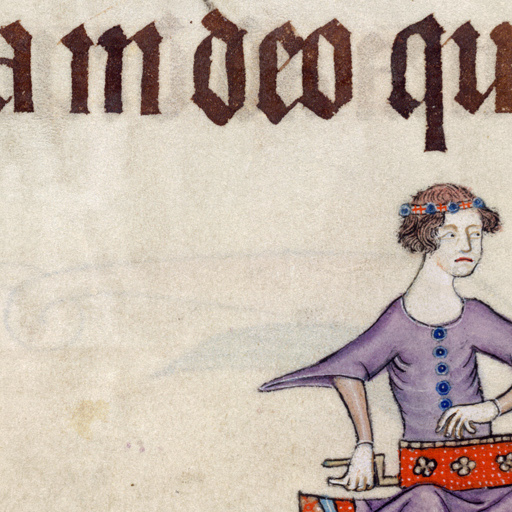 am deo qu